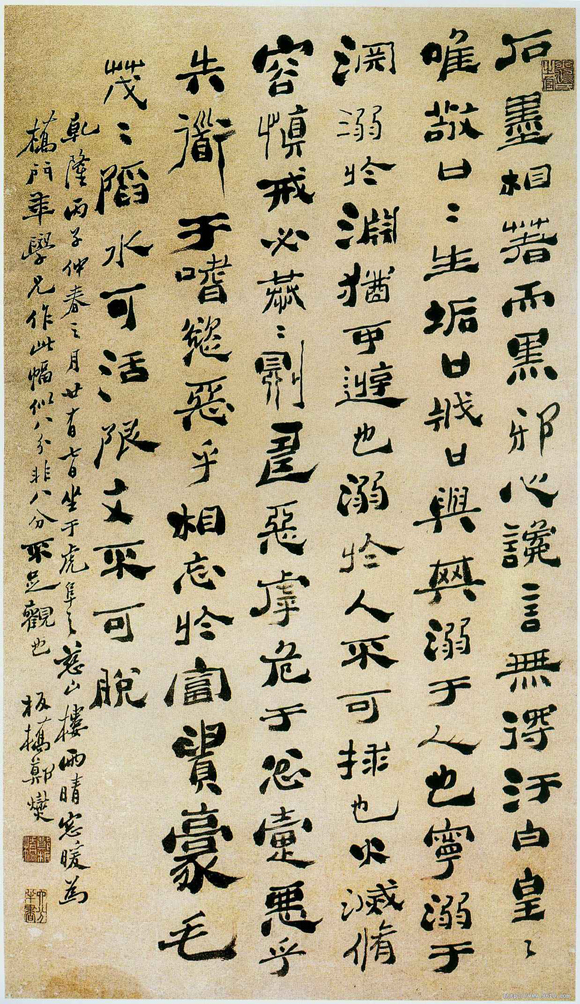 石墨相著而黑邪心讒言無得汙白皇〻
唯敬口〻生垢口戕口與其溺于人也寧溺于
淵溺於淵猶可遊也溺於人不可捄也火滅脩
容慎戒必恭〻則壽惡虖危于忿疐惡乎
失道于嗜慾惡乎相忘於富貴豪毛
茂〻陷水可活陷文不可脫
乾隆丙子仲春之月廿有七日坐于虎阜之慈山樓雨晴窓暖為
橋門年學兄作此幅似八分非八分不足觀也 板橋鄭燮